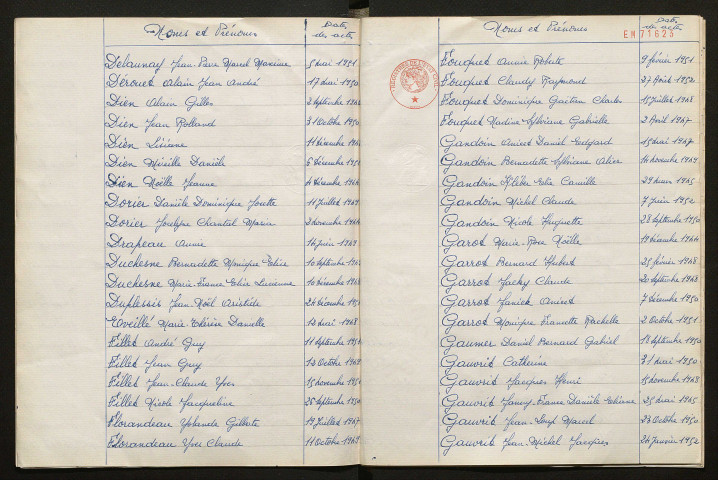 Noms et Prénoms Dates des actes
Delaunay Jean-Pierre Marcel Maxime 5 mai 1951
Dérouet Alain Jean André 17 mai 1950
Dien Alain Gilles 2 Septembre
Dien Jean Rolland 31 Octobre 1950
Dien Lisiane 11 Décembre
Dien Mireille Danièle 6 Décembre
Dien Noëlle Jeanne 4 Décembre
Dorier Danièle Dominique Josette 11 Juillet 1949
Dorier Chantal 2 novembre
Drapeau Annie 14 Juin 1949
Duchesne Bernadette Monique Elise 10 Septembre
Duchesne Marie-France Elise Lucienne 10 Décembre
Duplessis Jean Noël Aristide 24 Décembre
Eveillé Marie Danielle 12 mai 1948
Fillet André Guy 11 Septembre
Fillet Jean Guy 12 Octobre
Fillet Jean-Claude Yves 15 novembre
Fillet Nicole Jacqueline 25 Septembre
Florandeau Yolande Gilberte 19 Juillet 1947
Florandeau Yves Claude 11 Octobre 1949
Noms et Prénoms Dates des actes
EM 71623
Fouquet Annie 9 février 1951
Fouquet Claudy Raymond 27 Août 1952
Fouquet Dominique Gaëtan Charles 15 Juillet 1948
Fouquet Nadine Sylviane Gabrielle 2 Avril 1947
Gandoin Daniel Edgard 15 mai 1947
Gandoin Bernadette Sylviane Alice 14 novembre 1949
Gandoin Kléber Elie Camille 29 mars 1945
Gandoin Michel Claude 7 Juin 1952
Gandoin Nicole Huguette 28 Septembre 1950
Garot Marie-Rose Noëlle 19 Décembre
Garrot Bernard Hubert 25 février 1948
Garrot Jacky Claude 20 Septembre 1948
Garrot Yanick 7 Décembre 1950
Garrot Monique Francette Rachelle 2 Octobre 1951
Gaumer Daniel Bernard Gabriel 18 Septembre 1950
Gauvrit Catherine 31 mai 1950
Gauvrit Jacques Henri 15 novembre 1948
Gauvrit Danièle 25 mai 1945
Gauvrit Jean-Loup Marcel 23 Octobre 1950
Gauvrit Jean-Michel Jacques 24 Janvier 1952